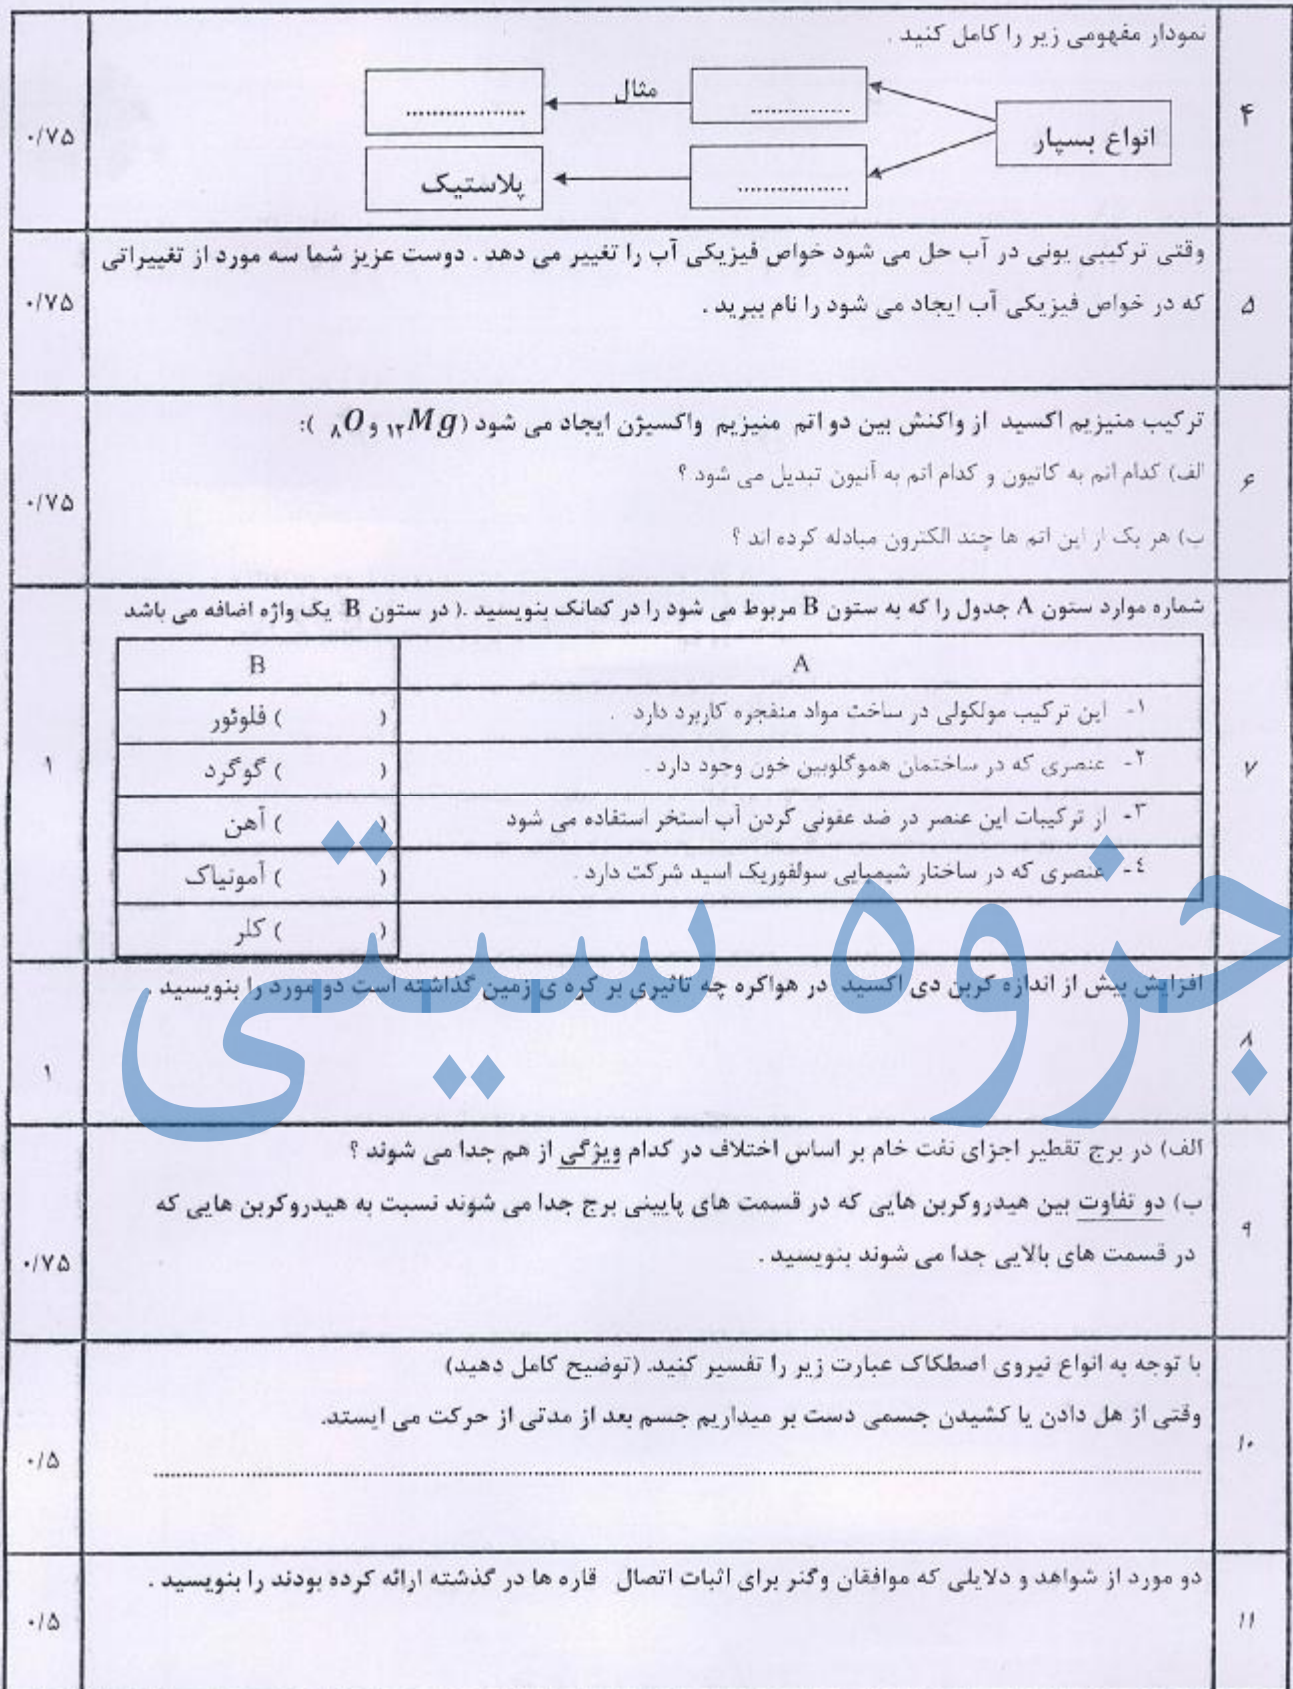 ۴
نمودار مفهومی زیر را کامل کنید .
انواع بسپار
..............
مثال
..................
................
پلاستیک
۰/۷۵
۵
وقتی ترکیبی یونی در آب حل می شود خواص فیزیکی آب را تغییر می دهد . دوست عزیز شما سه مورد از تغییراتی
که در خواص فیزیکی آب ایجاد می شود را نام ببرید .
۰/۷۵
۶
ترکیب منیزیم اکسید از واکنش بین دو اتم منیزیم واکسیژن ایجاد می شود (₁₂Mg و ₈O ):
الف) کدام اتم به کاتیون و کدام اتم به آنیون تبدیل می شود ؟
ب) هر یک از این اتم ها چند الکترون مبادله کرده اند ؟
۰/۷۵
۷
شماره موارد ستون A جدول را که به ستون B مربوط می شود را در کمانک بنویسید .( در ستون B یک واژه اضافه می باشد
A
B
۱- این ترکیب مولکولی در ساخت مواد منفجره کاربرد دارد .
( ) فلوئور
۲- عنصری که در ساختمان هموگلوبین خون وجود دارد .
( ) گوگرد
۳- از ترکیبات این عنصر در ضد عفونی کردن آب استخر استفاده می شود
( ) آهن
٤- عنصری که در ساختار شیمیایی سولفوریک اسید شرکت دارد .
( ) آمونیاک
( ) کلر
۱
جزوه سیتی
۸
افزایش بیش از اندازه کربن دی اکسید در هواکره چه تاثیری بر کره ی زمین گذاشته است دو مورد را بنویسید .
۱
۹
الف) در برج تقطیر اجزای نفت خام بر اساس اختلاف در کدام ویژگی از هم جدا می شوند ؟
ب) دو تفاوت بین هیدروکربن هایی که در قسمت های پایینی برج جدا می شوند نسبت به هیدروکربن هایی که
در قسمت های بالایی جدا می شوند بنویسید .
۰/۷۵
۱۰
با توجه به انواع نیروی اصطکاک عبارت زیر را تفسیر کنید. (توضیح کامل دهید)
وقتی از هل دادن یا کشیدن جسمی دست بر میداریم جسم بعد از مدتی از حرکت می ایستد.
................................................................................
۰/۵
۱۱
دو مورد از شواهد و دلایلی که موافقان وگنر برای اثبات اتصال قاره ها در گذشته ارائه کرده بودند را بنویسید .
۰/۵